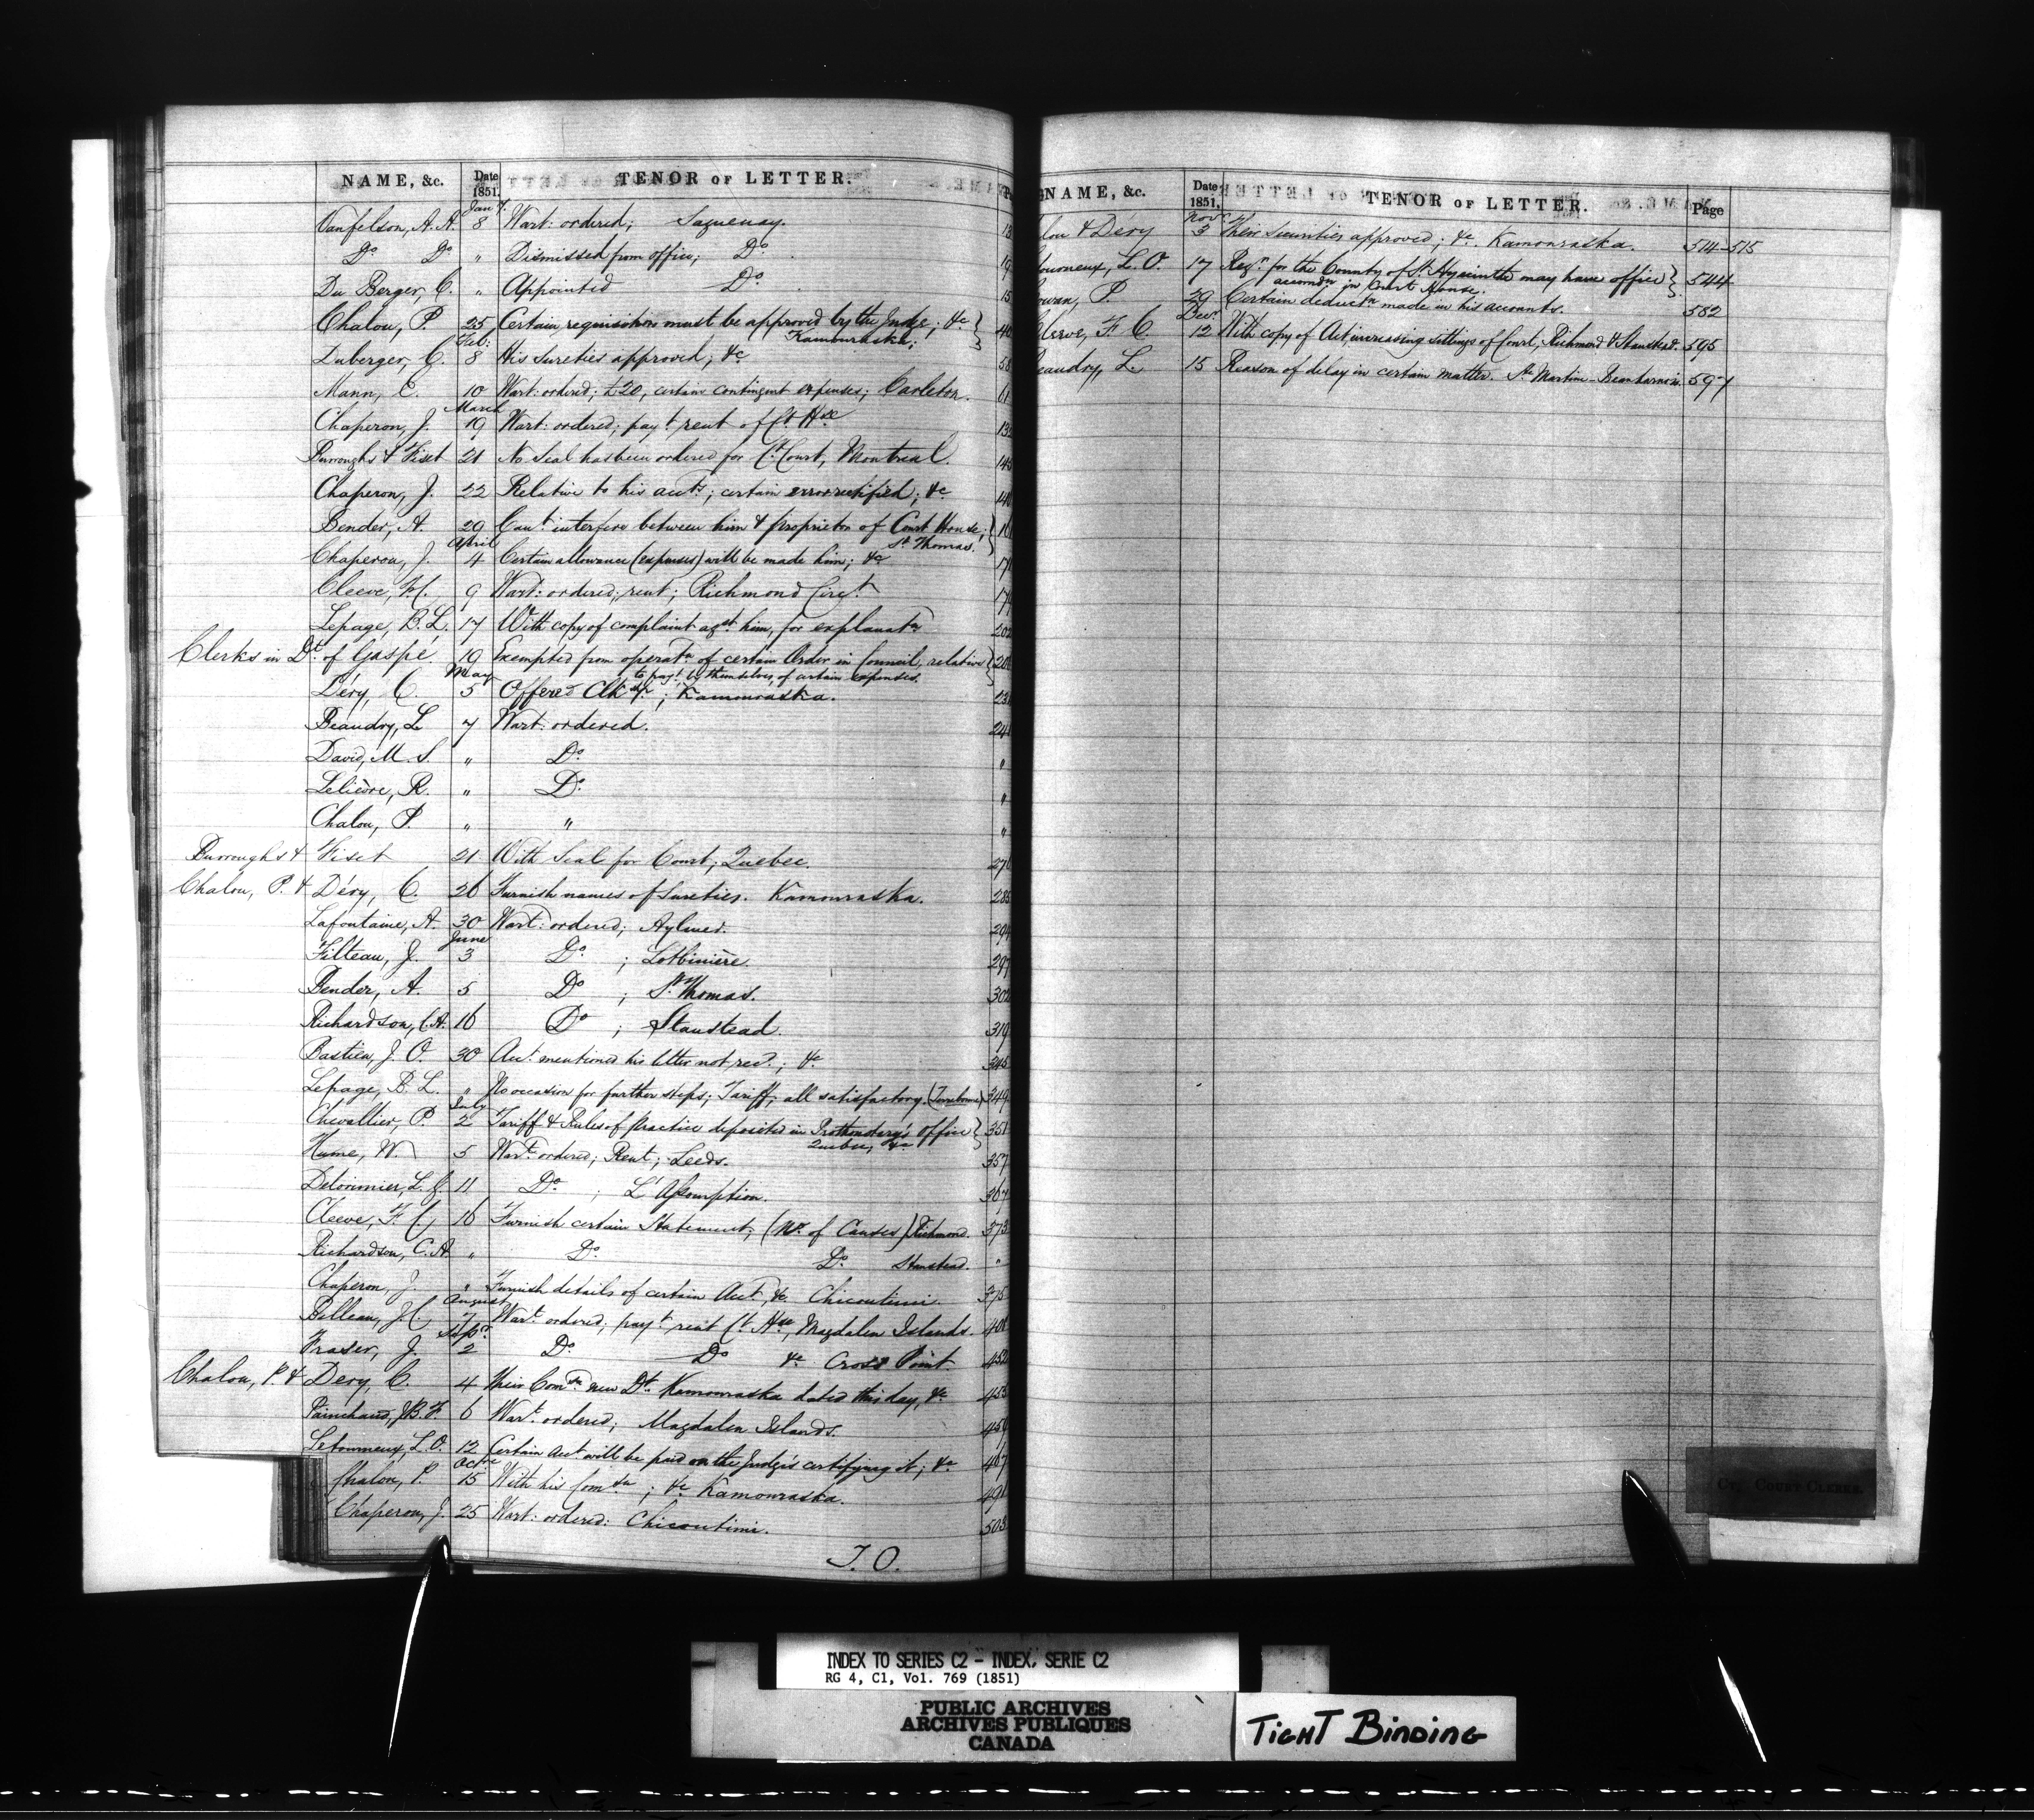 NAME, &c. Date 1851. TENOR OF LETTER.
Jany.
Vanfelson, A. A. 8 Wart: ordered; Saguenay. 13
Do Do " Dismissed from office; Do 19
Du Berger, C. " Appointed Do 15
Chalou, P. 25 Certain requisition must be approved by the Judge; &c } 40
Kamouraska;
Feb:
Duberger, C. 8 His sureties approved; &c 58
Mann, E. 10 Wart: ordered; £20, certain contingent expenses; Carleton. 61
March
Chaperon, J. 19 Wart: ordered; payt rent of Ct Hse 13
Burroughs & Fiset 21 No Seal has been ordered for Ct Court, Montreal. 14
Chaperon, J. 22 Relative to his acts; certain error rectified; &c 14
Bender, A. 29 Can't interfere between him & proprietor of Court House; } 16
St Thomas.
April
Chaperon, J. 4 Certain allowance (expenses) will be made him; &c 17
Cleeve, F.C. 9 Wart: ordered; rent; Richmond Circt 17
Lepage, B. L. 17 With copy of complaint agst him, for explanatn 202
Clerks in Dt of Gaspé. 19 Exempted from operatn of certain Order in Council, relative } 20
to payt by themselves, of certain expenses.
May
Déry, C. 5 Offered Clkshp; Kamouraska. 23
Beaudry, L. 7 Wart: ordered. 24
David, M. S. " Do "
Lelièvre, R. " Do "
Chalou, P. " " "
Burroughs & Fiset 21 With Seal for Court; Quebec. 27
Chalou, P. & Déry, C. 26 Furnish names of Sureties. Kamouraska. 285
Lafontaine, A. 30 Wart: ordered; Aylmer. 294
June
Filteau, J. 3 Do ; Lotbinière. 297
Bender, A. 5 Do ; St Thomas. 302
Richardson, C.A. 16 Do ; Stanstead. 319
Bastien, J. O. 30 Act mentioned his letter not recd.; &c 345
Lepage, B. L. " No occasion for further steps; Tariff, all satisfactory. (Terrebonne) 349
July
Chevallier, P. 2 Tariff & Rules of Practice deposited in Prothonotary's office } 351
Quebec, &c
Hume, W. 5 Wart ordered; Rent; Leeds. 357
Delorimier, L. G. 11 Do ; L'Assomption. 367
Cleeve, F. C. 16 Furnish certain Statement; (No. of Causes) Richmond. 373
Richardson, C. A. " Do Do Stanstead. "
Chaperon, J. " Furnish details of certain Act, &c Chicoutimi. 375
August
Belleau, J.C. 7 Wart ordered; payt rent Ct Hse, Magdalen Islands. 40
Septr.
Fraser, J. 2 Do Do &c Cross Point. 452
Chalou, P. & Dery, C. 4 Their Comsn new Dt. Kamouraska dated this day, &c 453
Painchaud, J.B.F. 6 Wart ordered; Magdalen Islands. 459
Letourneux, L.O. 12 Certain act will be paid on the Judge's certifying it; &c 467
Octre
Chalou, P. 15 With his Comsn; &c Kamouraska. 491
Chaperon, J. 25 Wart: ordered: Chicoutimi. 503
T. O.
NAME, &c. Date 1851. TENOR OF LETTER. Page
Novr
lou & Déry 3 Their Securities approved; &c. Kamouraska. 514-515
ourneux, L. O. 17 Regr. for the County of St Hyacinthe may have office } 544
accomdn in Court House.
owan, P. 29 Certain deductn made in his accounts. 582
Decr
leeve, F. C. 12 With copy of Act increasing sittings of Court, Richmond & Stanstead. 595
eaudry, L. 15 Reason of delay in certain matter. Ste Martine - Beauharnois. 597
CT. COURT CLERKS.
INDEX TO SERIES C2 - INDEX, SERIE C2
RG 4, C1, Vol. 769 (1851)
PUBLIC ARCHIVES
ARCHIVES PUBLIQUES
CANADA
TIGHT BINDING